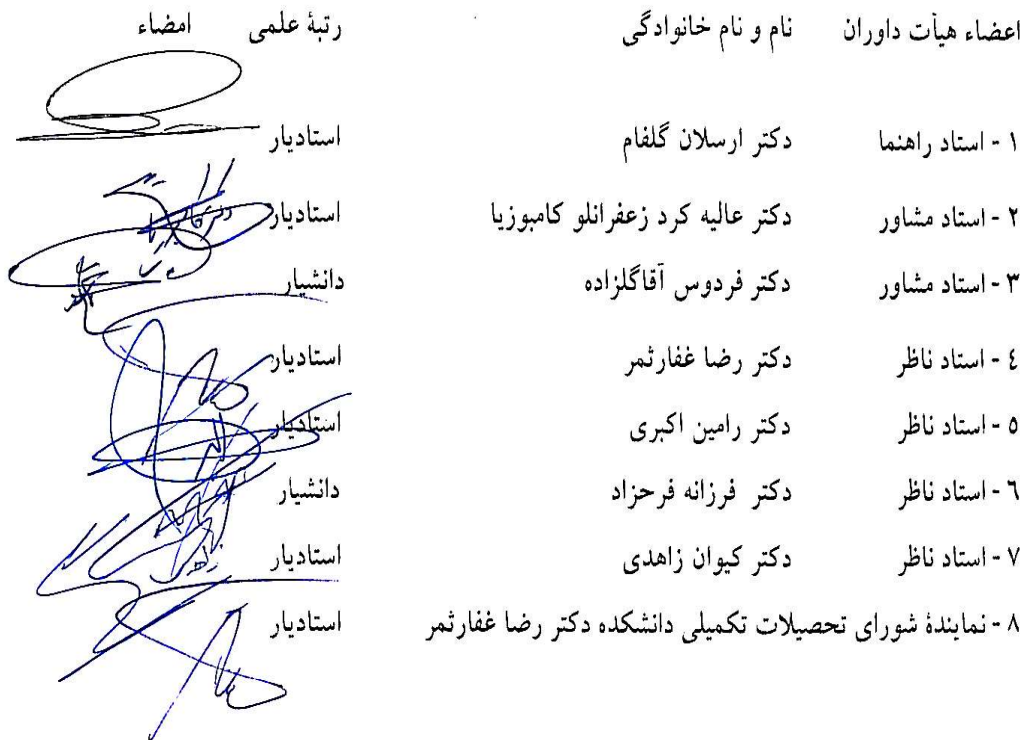 اعضاء هیأت داوران نام و نام خانوادگی رتبهٔ علمی امضاء
۱ - استاد راهنما دکتر ارسلان گلفام استادیار
۲ - استاد مشاور دکتر عالیه کرد زعفرانلو کامبوزیا استادیار
۳ - استاد مشاور دکتر فردوس آقاگلزاده دانشیار
٤ - استاد ناظر دکتر رضا غفارثمر استادیار
٥ - استاد ناظر دکتر رامین اکبری استادیار
٦ - استاد ناظر دکتر فرزانه فرحزاد دانشیار
۷ - استاد ناظر دکتر کیوان زاهدی استادیار
۸ - نمایندهٔ شورای تحصیلات تکمیلی دانشکده دکتر رضا غفارثمر استادیار